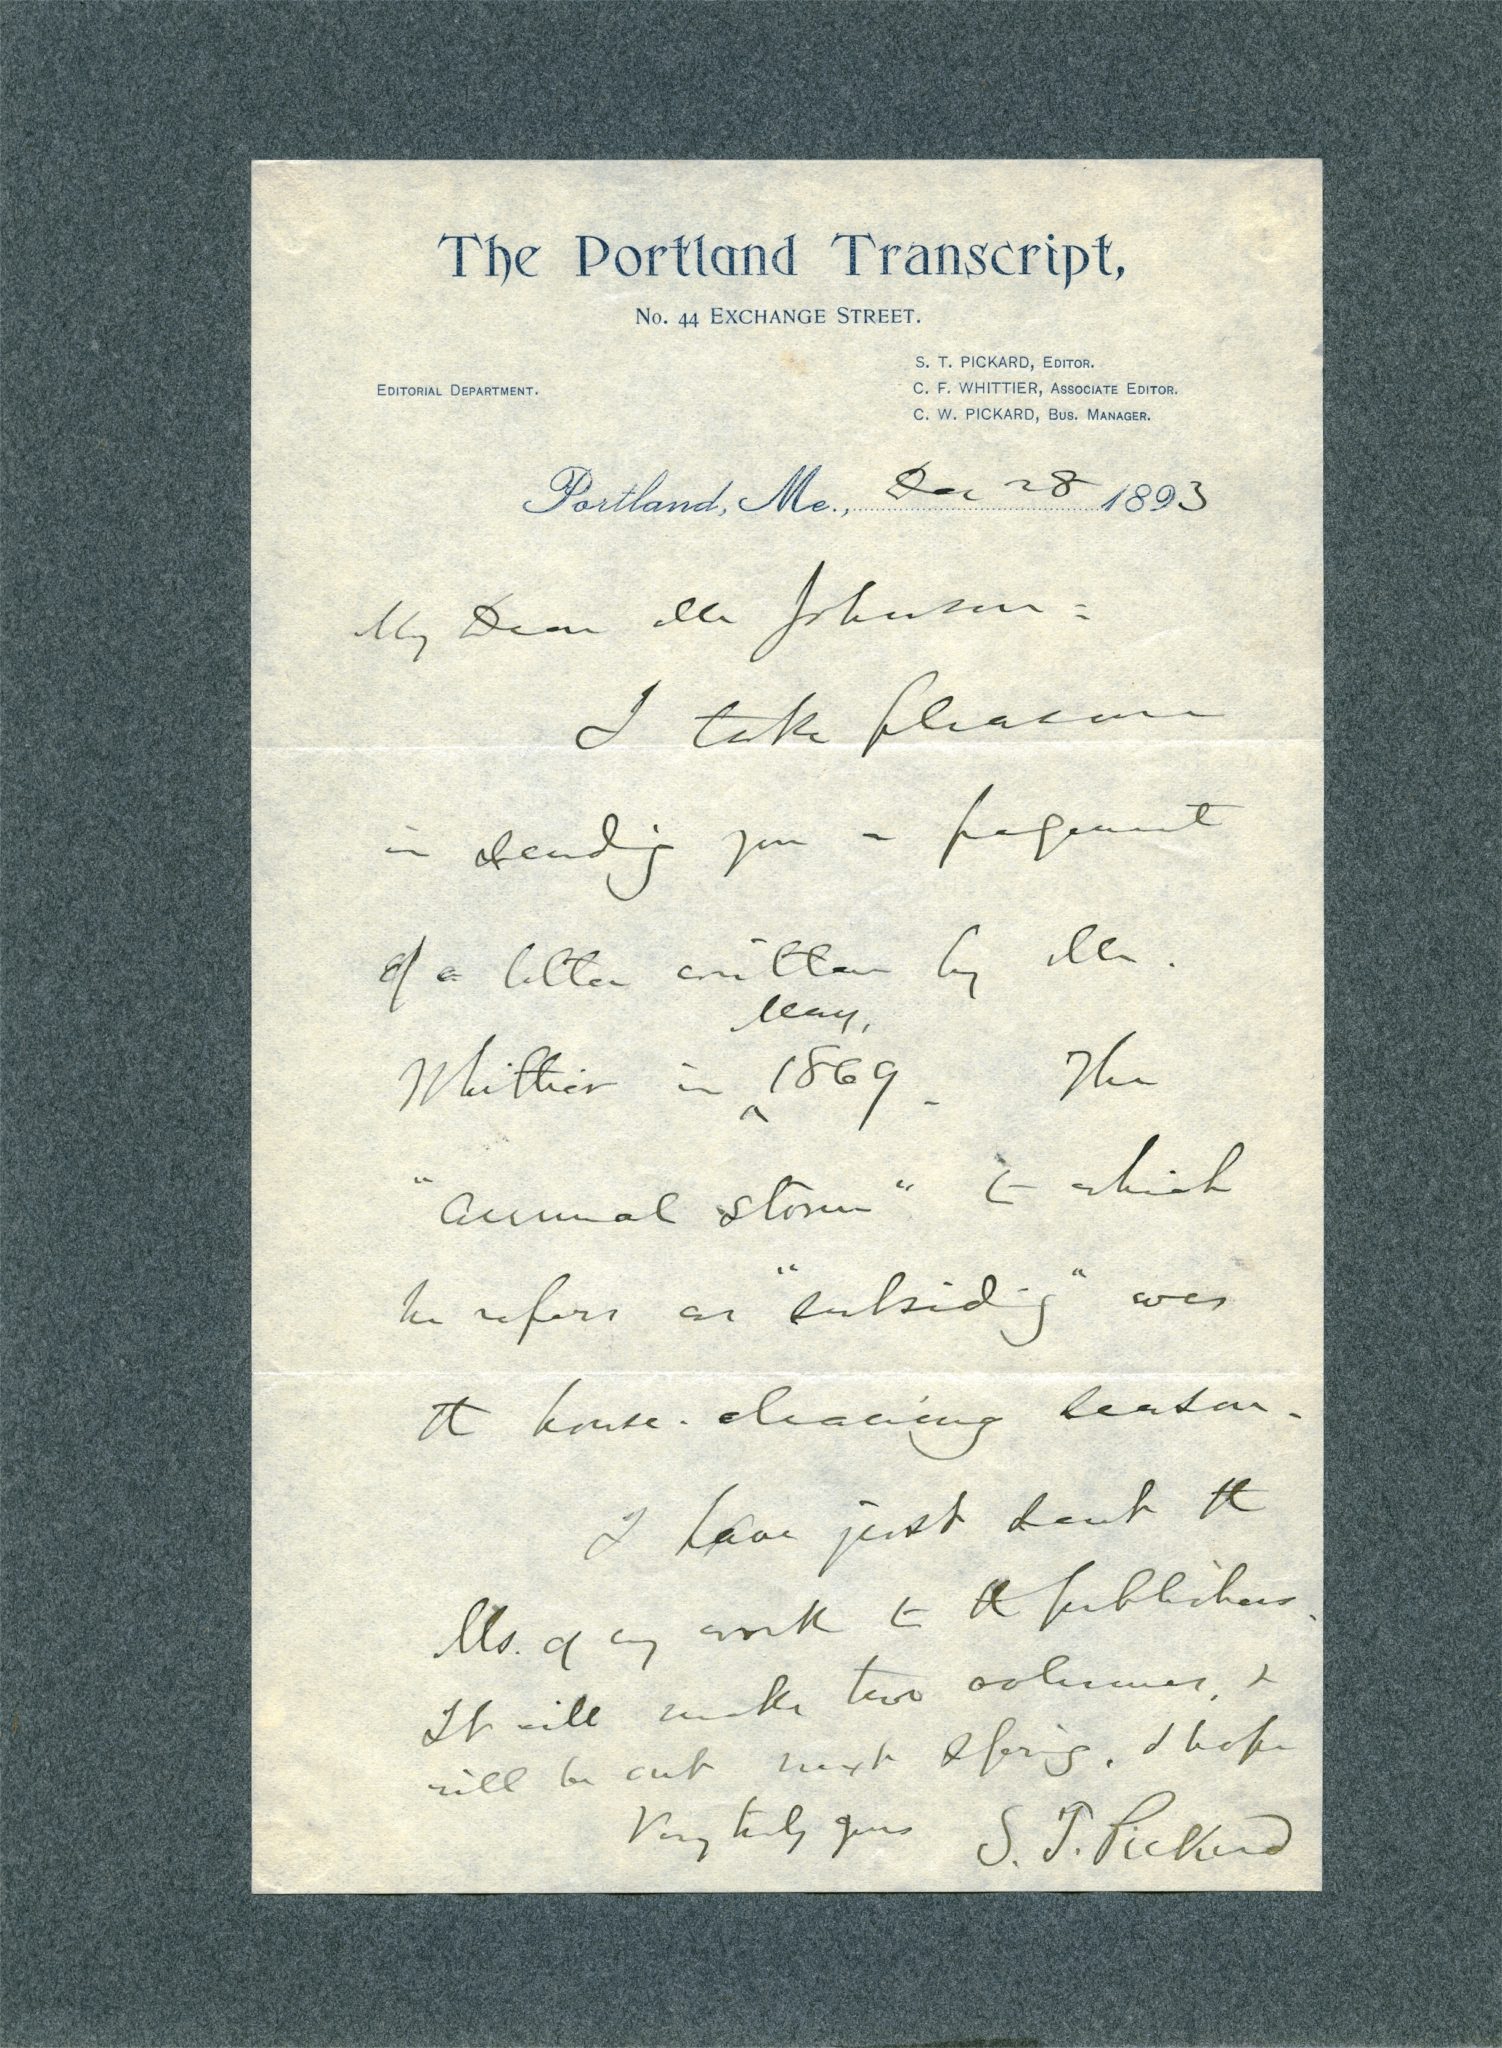 The Portland Transcript,
No. 44 EXCHANGE STREET.
S. T. PICKARD, EDITOR.
EDITORIAL DEPARTMENT.
C. F. WHITTIER, ASSOCIATE EDITOR.
C. W. PICKARD, BUS. MANAGER.
Portland, Me., Dec 28 1893
My Dear Mr Johnson =
I take pleasure
in sending you a fragment
of a letter written by Mr.
May,
Whittier in ^ 1869 - The
"annual storm" to which
he refers as "subsiding" was
the house-cleaning season.
I have just sent the
Ms. of my work to the publishers.
It will make two volumes, &
will be out next spring, I hope
Very truly yours S. T. Pickard